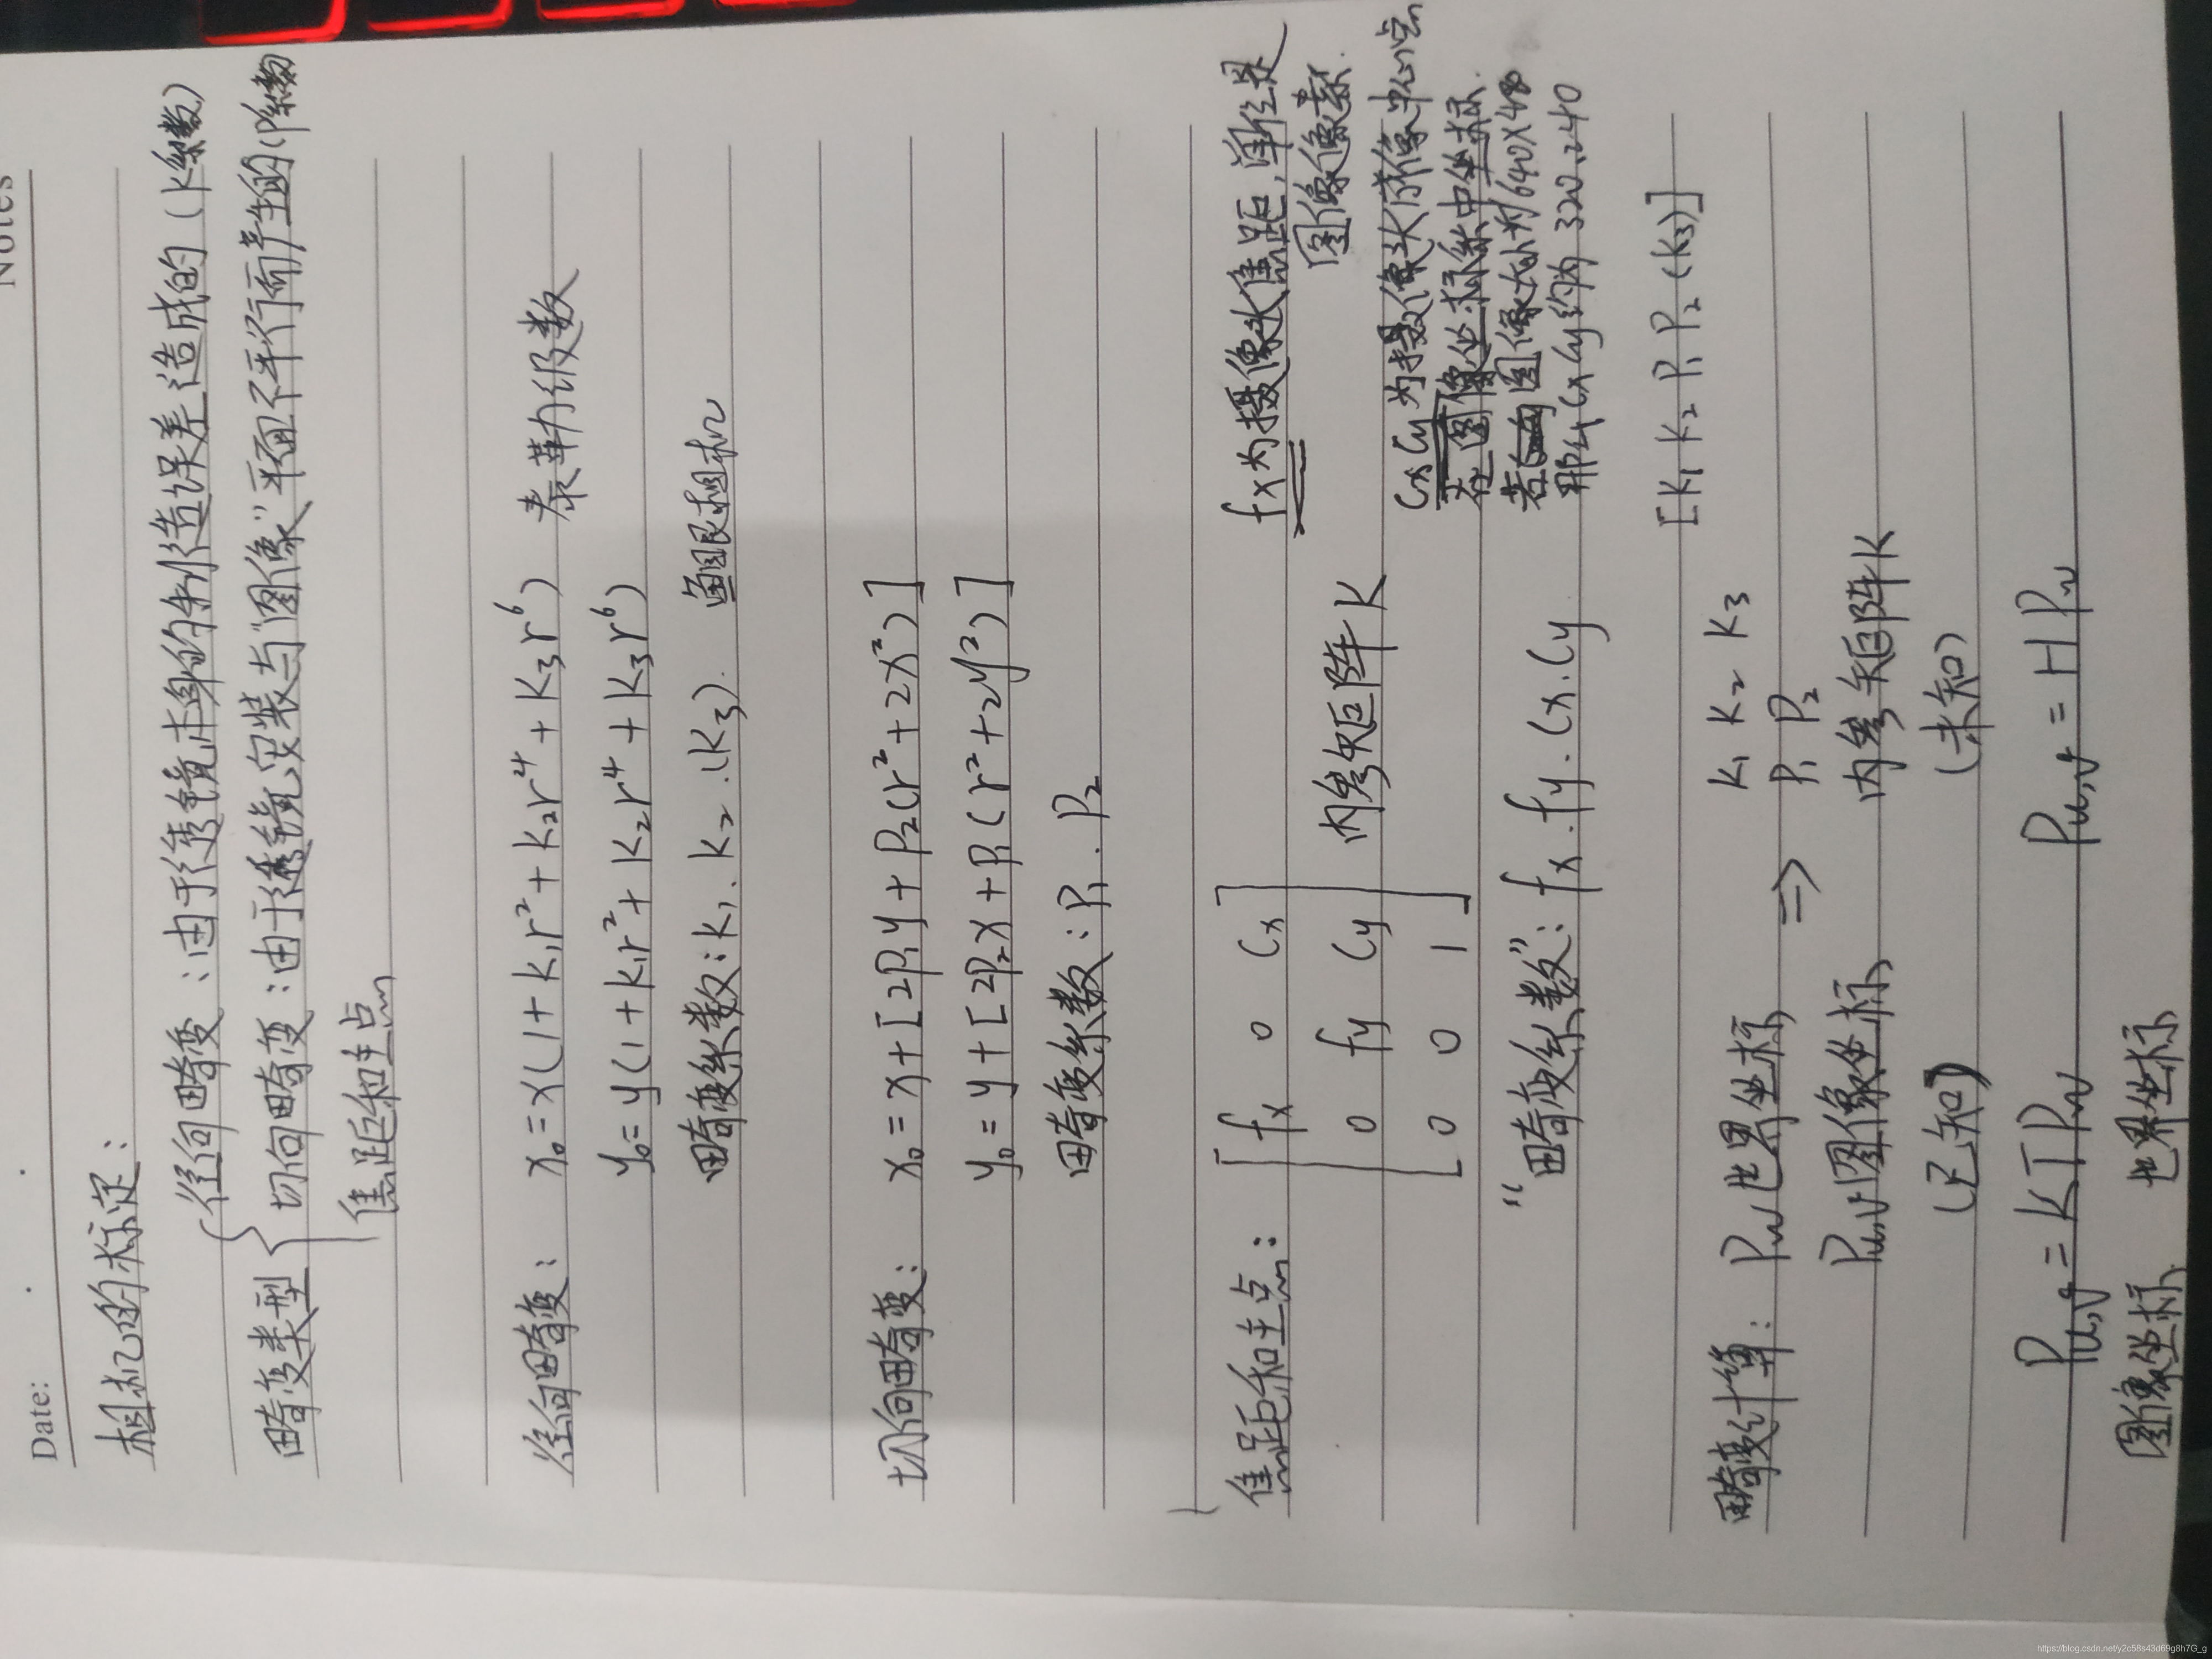 Notes
Date:
相机的标定：
畸变类型
径向畸变：由于透镜本身的制造误差造成的（K系数）
切向畸变：由于透镜安装与"图像"平面不平行而产生的（P系数
焦距和主点
径向畸变： x₀ = x(1 + K₁r² + K₂r⁴ + K₃r⁶) 泰勒级数
y₀ = y(1 + K₁r² + K₂r⁴ + K₃r⁶)
畸变系数：K₁、K₂.(K₃). 鱼眼相机
切向畸变： x₀ = x + [2P₁y + P₂(r² + 2x²)]
y₀ = y + [2P₂x + P₁(r² + 2y²)]
畸变系数：P₁.P₂
焦距和主点： [fx 0 Cx
0 fy Cy
0 0 1] 内参矩阵K
fx为摄像头焦距，单位是
图像像素.
Cx Cy 为摄像头成像中心点
在图像坐标系中坐标.
若图像大小为640X480
那么Cx Cy约为 320,240
"畸变系数"：fx.fy.Cx.Cy
[K₁ K₂ P₁ P₂ (K₃)]
畸变计算： Pw世界坐标 ⇒ K₁ K₂ K₃
P₁ P₂
Pu,v图像坐标 内参矩阵K
(已知) (未知)
Pu,v = KTPw Pu,v = HPw
图像坐标 世界坐标
https://blog.csdn.net/y2c58s43d69g8h7G_g